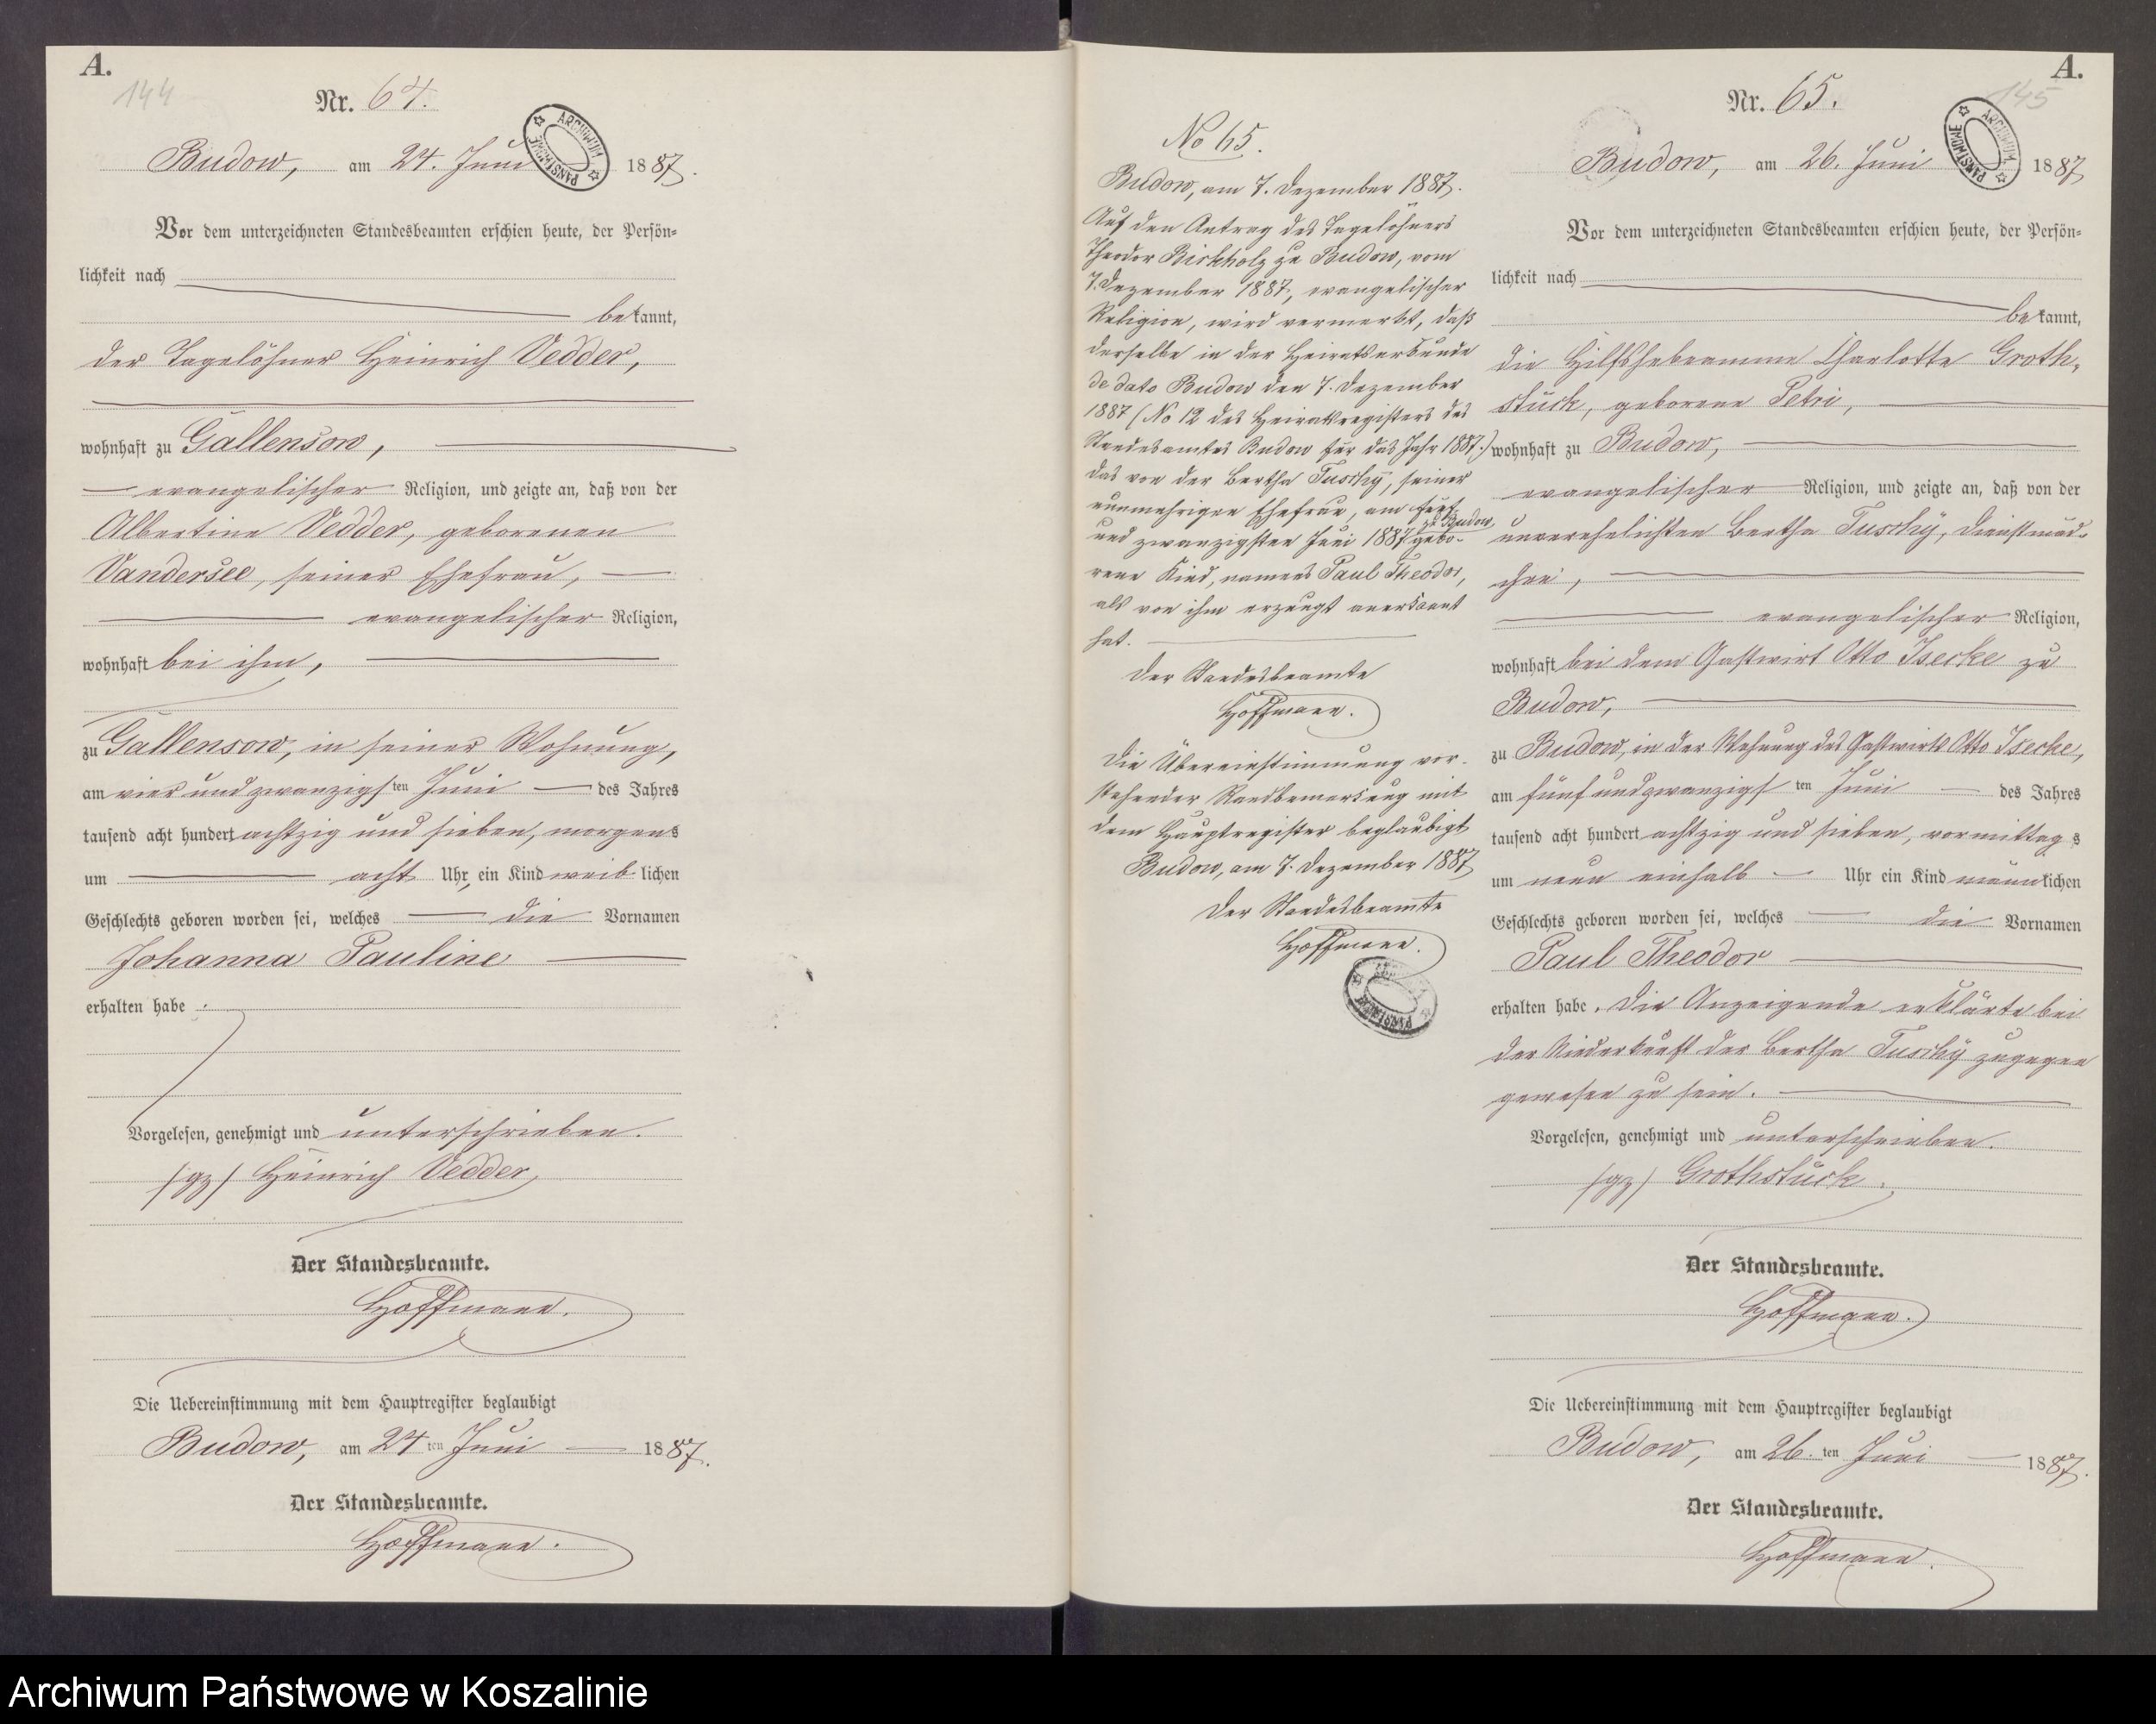 A.
144
Nr. 64.
Budow, am 24. Juni 1887.
ARCHIWUM PAŃSTWOWE
Vor dem unterzeichneten Standesbeamten erschien heute, der Persön-
lichkeit nach
bekannt,
der Tagelöhner Heinrich Vedder,
wohnhaft zu Gallensow,
evangelischer Religion, und zeigte an, daß von der
Albertine Vedder, geborenen
Vandersee, seiner Ehefrau,
evangelischer Religion,
wohnhaft bei ihm,
zu Gallensow, in seiner Wohnung,
am vier und zwanzigsten Juni des Jahres
tausend acht hundert achtzig und sieben, morgens
um acht Uhr, ein Kind weiblichen
Geschlechts geboren worden sei, welches die Vornamen
Johanna Pauline
erhalten habe.
Vorgelesen, genehmigt und unterschrieben.
(gz) Heinrich Vedder
Der Standesbeamte.
Hoffmann.
Die Uebereinstimmung mit dem Hauptregister beglaubigt
Budow, am 24ten Juni 1887.
Der Standesbeamte.
Hoffmann.
No 65.
Budow, am 7. Dezember 1887.
Auf den Antrag des Tagelöhners
Theodor Birkholz zu Budow, vom
7. Dezember 1887, evangelischer
Religion, wird vermerkt, daß
derselbe in der Heiratsurkunde
de dato Budow den 7. Dezember
1887 (No 12 des Heiratsregisters des
Standesamtes Budow für das Jahr 1887.)
das von der Bertha Tuschÿ, seiner
nunmehrigen Ehefrau, am fünf
und zwanzigsten Juni 1887 zu Budow, gebo-
rene Kind, namens Paul Theodor,
als von ihm erzeugt anerkannt
hat.
Der Standesbeamte
Hoffmann.
Die Übereinstimmung vor-
stehender Randbemerkung mit
dem Hauptregister beglaubigt
Budow, am 7. Dezember 1887
Der Standesbeamte
Hoffmann.
A.
145
Nr. 65.
Budow, am 26. Juni 1887
ARCHIWUM PAŃSTWOWE
Vor dem unterzeichneten Standesbeamten erschien heute, der Persön-
lichkeit nach
bekannt,
die Hilfshebeamme Charlotte Groth-
stück, geborene Petri,
wohnhaft zu Budow,
evangelischer Religion, und zeigte an, daß von der
unverehelichten Bertha Tuschÿ, Dienstmäd-
chen,
evangelischer Religion,
wohnhaft bei dem Gastwirt Otto Isecke zu
Budow,
zu Budow, in der Wohnung des Gastwirts Otto Isecke,
am fünf und zwanzigsten Juni des Jahres
tausend acht hundert achtzig und sieben, vormittags
um neun einhalb Uhr ein Kind männlichen
Geschlechts geboren worden sei, welches die Vornamen
Paul Theodor
erhalten habe. Die Anzeigende erklärte bei
der Niederkunft der Bertha Tuschÿ zugegen
gewesen zu sein.
Vorgelesen, genehmigt und unterschrieben.
(gz) Grothstück.
Der Standesbeamte.
Hoffmann.
Die Uebereinstimmung mit dem Hauptregister beglaubigt
Budow, am 26.ten Juni 1887.
Der Standesbeamte.
Hoffmann.
Archiwum Państwowe w Koszalinie